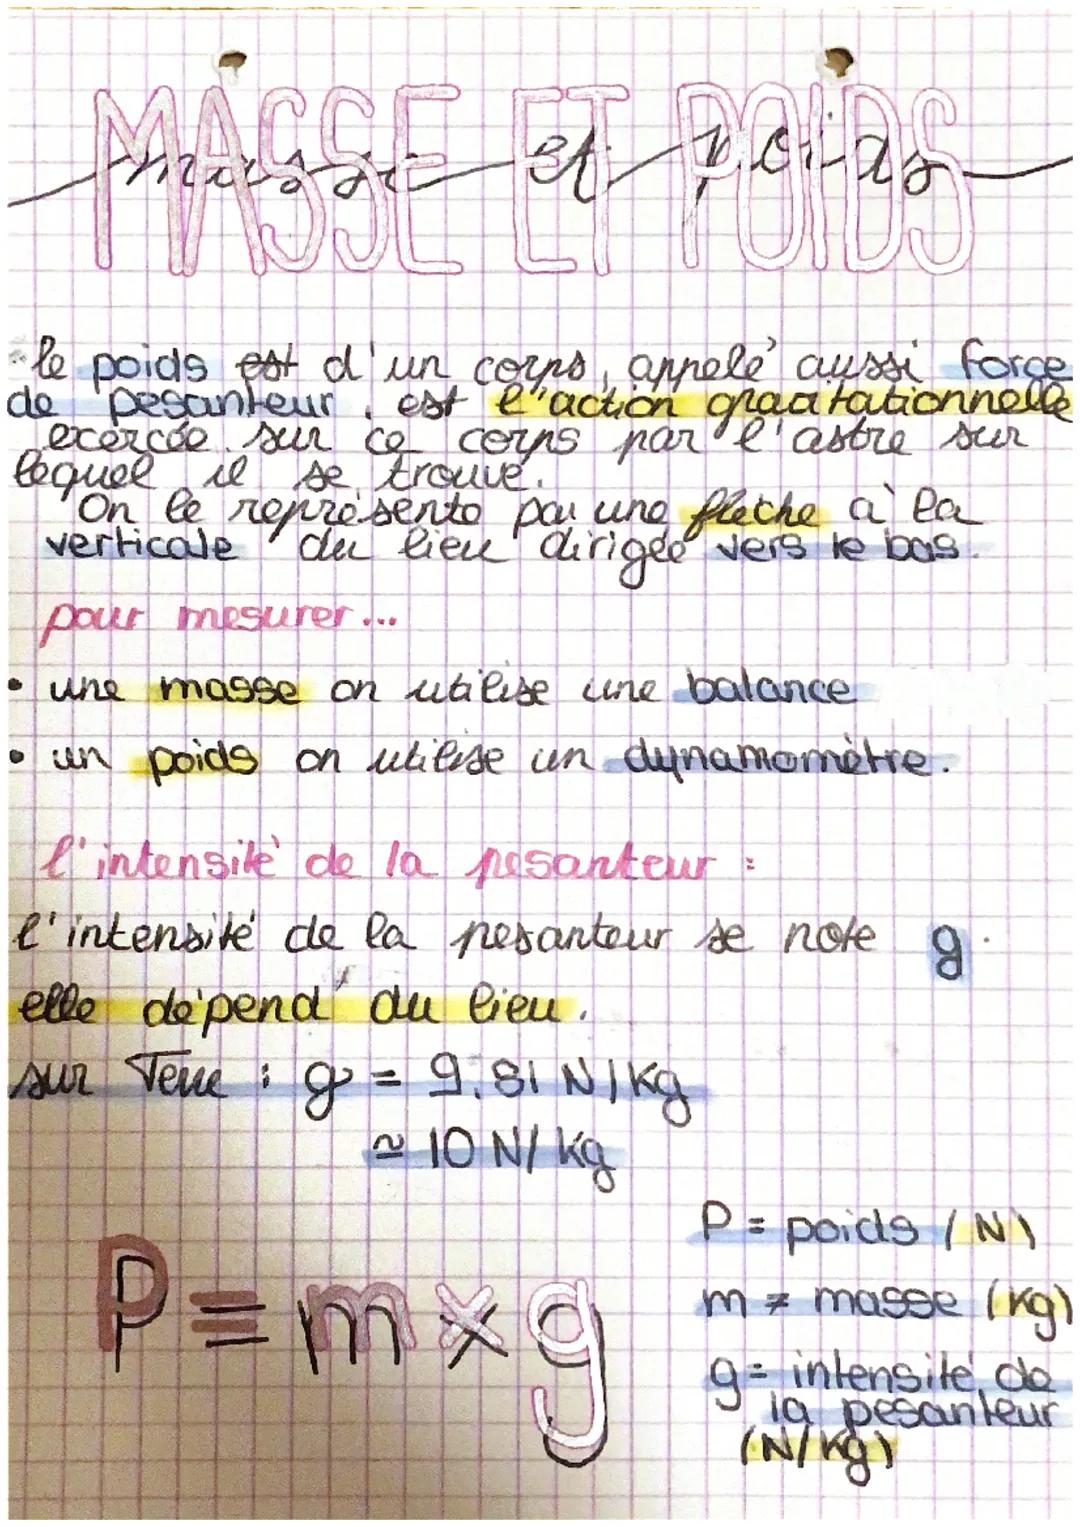 MASSE ET POIDS
masse et poids
le poids est d'un corps, appelé aussi force
de pesanteur, est l'action gravitationnelle
exercée sur ce corps par l'astre sur
lequel il se trouve.
On le représente par une flèche à la
verticale du lieu dirigée vers le bas.
pour mesurer...
• une masse on utilise une balance
• un poids on utilise un dynamomètre.
l'intensité de la pesanteur :
l'intensité de la pesanteur se note g.
elle dépend du lieu.
sur Terre : g = 9.81 N/kg
≃ 10 N/kg
P = m × g
P = poids (N)
m = masse (kg)
g = intensité de
la pesanteur
(N/kg)